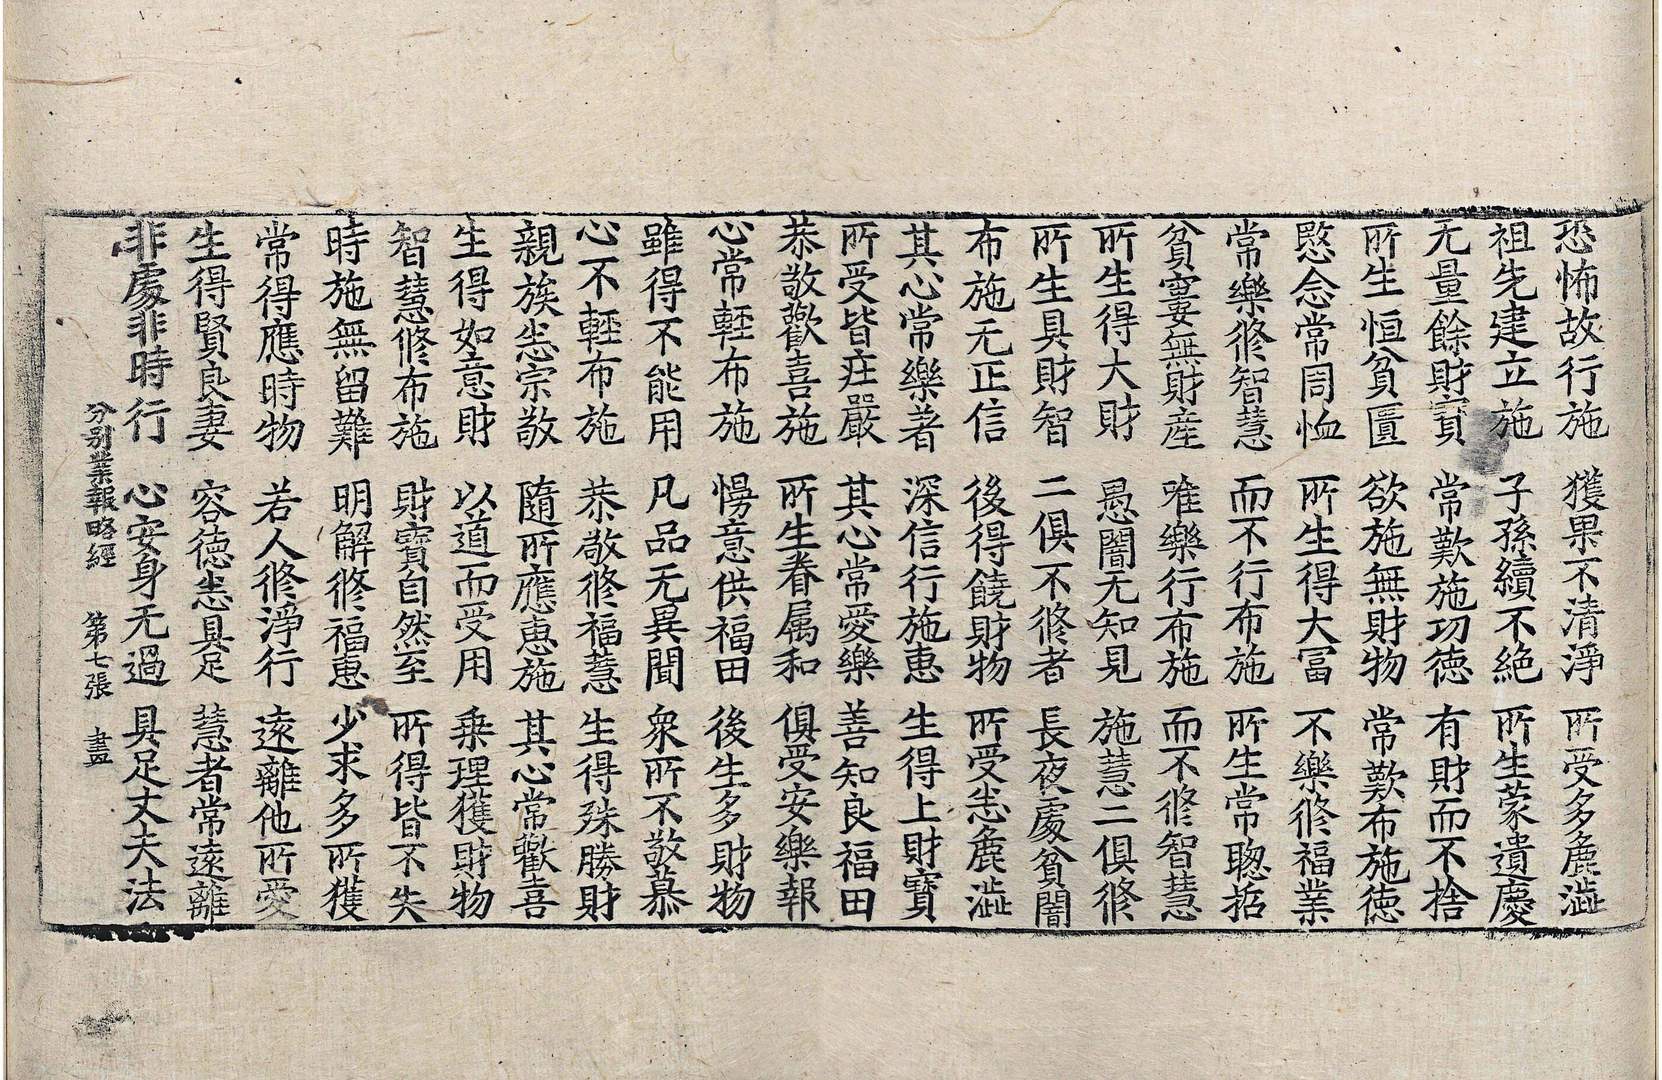 恐怖故行施 獲果不清淨 所受多麁澁
祖先建立施 子孫續不絶 所生蒙遺慶
无量餘財寳 常歎施功徳 有財而不捨
所生恒貧匱 欲施無財物 常歎布施徳
愍念常周恤 所生得大冨 不樂修福業
常樂修智慧 而不行布施 所生常聦哲
貧窶無財産 唯樂行布施 而不修智慧
所生得大財 愚闇无知見 施慧二俱修
所生具財智 二俱不修者 長夜處貧闇
布施无正信 後得饒財物 所受恙麁澁
其心常樂著 深信行施惠 生得上財寳
所受皆莊嚴 其心常愛樂 善知良福田
恭敬歡喜施 所生眷属和 俱受安樂報
心常輕布施 慢意供福田 後生多財物
雖得不能用 凡品无異聞 衆所不敬慕
心不輕布施 恭敬修福慧 生得殊勝財
親族恙宗敬 隨所應惠施 其心常歡喜
生得如意財 以道而受用 乗理獲財物
智慧修布施 財寳自然至 所得皆不失
時施無留難 明解修福惠 少求多所獲
常得應時物 若人修淨行 遠離他所愛
生得賢良妻 容徳恙具足 慧者常遠離
非處非時行 心安身无過 具足丈夫法
分别業報略經 第七張 盡